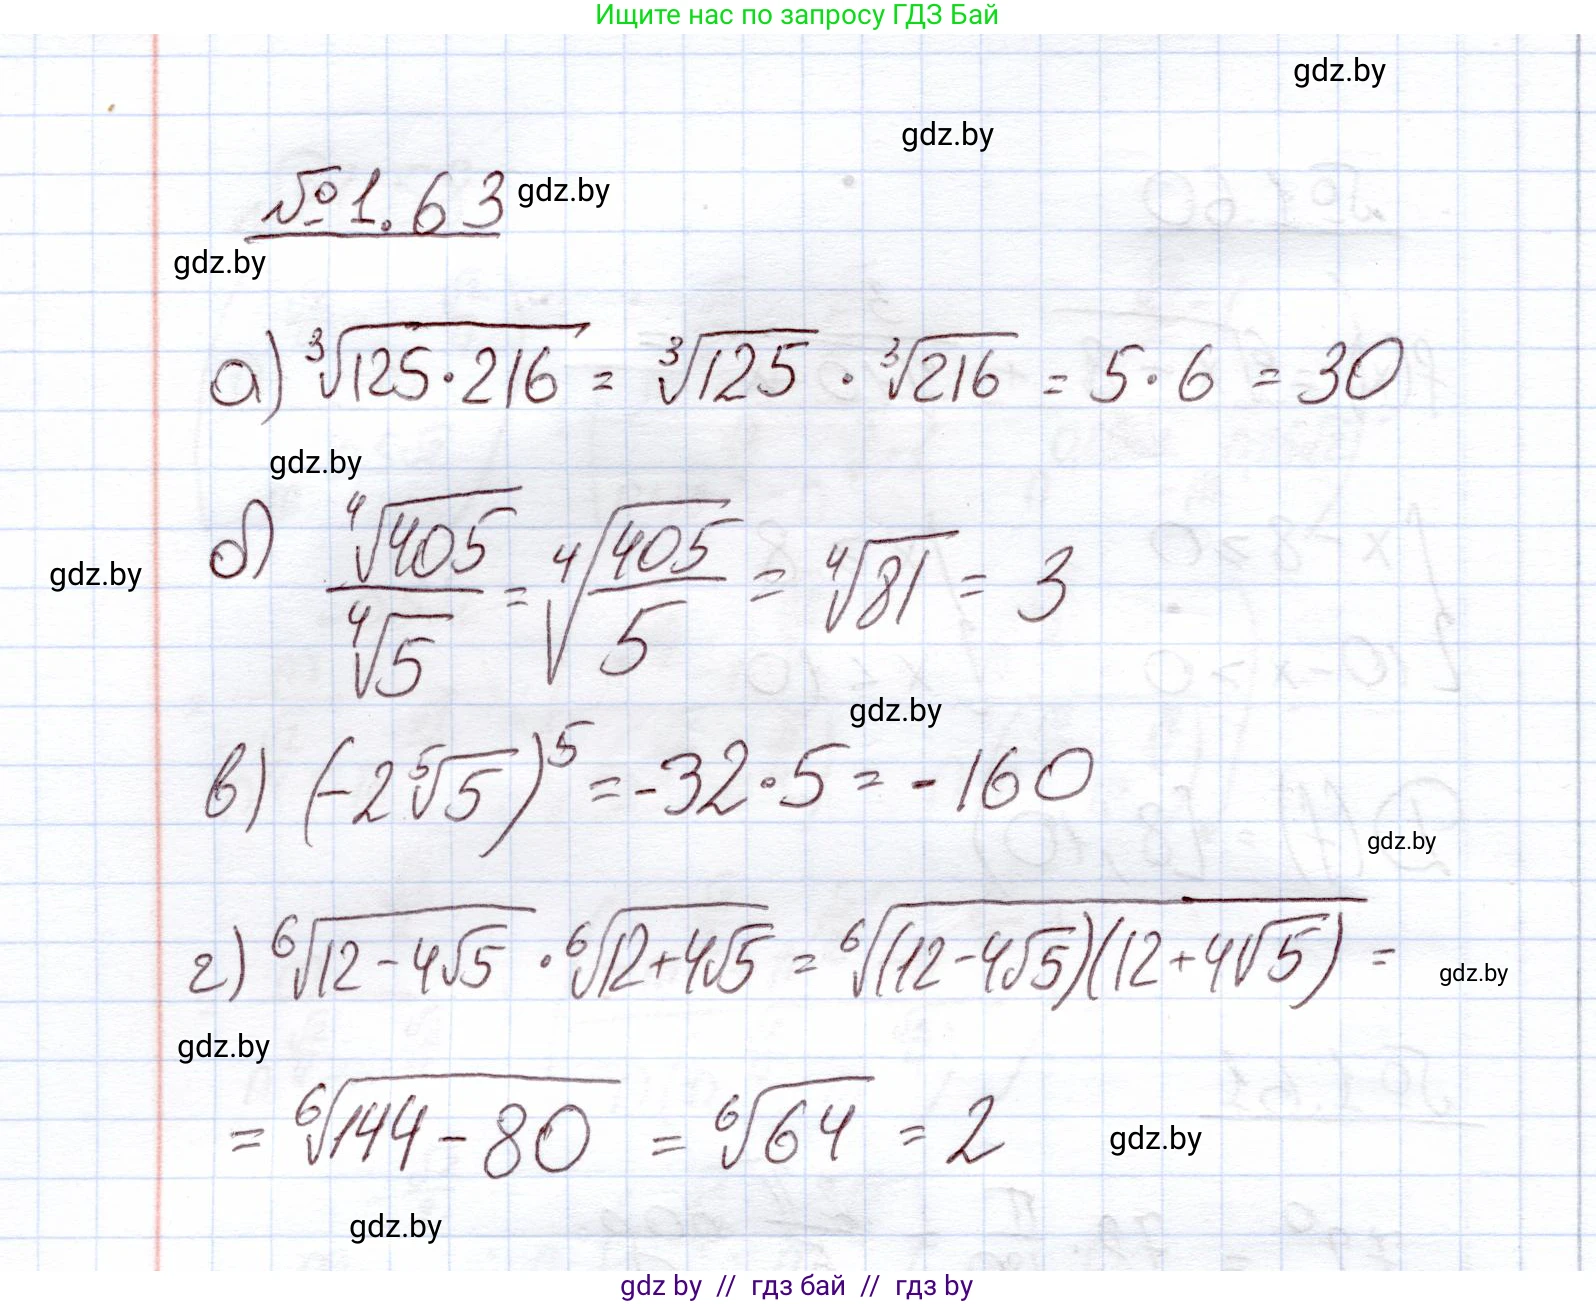 Ищите нас по запросу ГДЗ Бай
gdz.by
gdz.by
№1.63 gdz.by
gdz.by
а) ∛(125·216) = ∛125 · ∛216 = 5·6 = 30
gdz.by
б) ∜405 / ∜5 = ∜(405/5) = ∜81 = 3
gdz.by
gdz.by
в) (-2⁵√5)⁵ = -32·5 = -160
gdz.by
г) ⁶√(12-4√5) · ⁶√(12+4√5) = ⁶√((12-4√5)(12+4√5)) =
gdz.by
gdz.by
= ⁶√(144-80) = ⁶√64 = 2
gdz.by
gdz.by
gdz by // гдз бай // гдз by